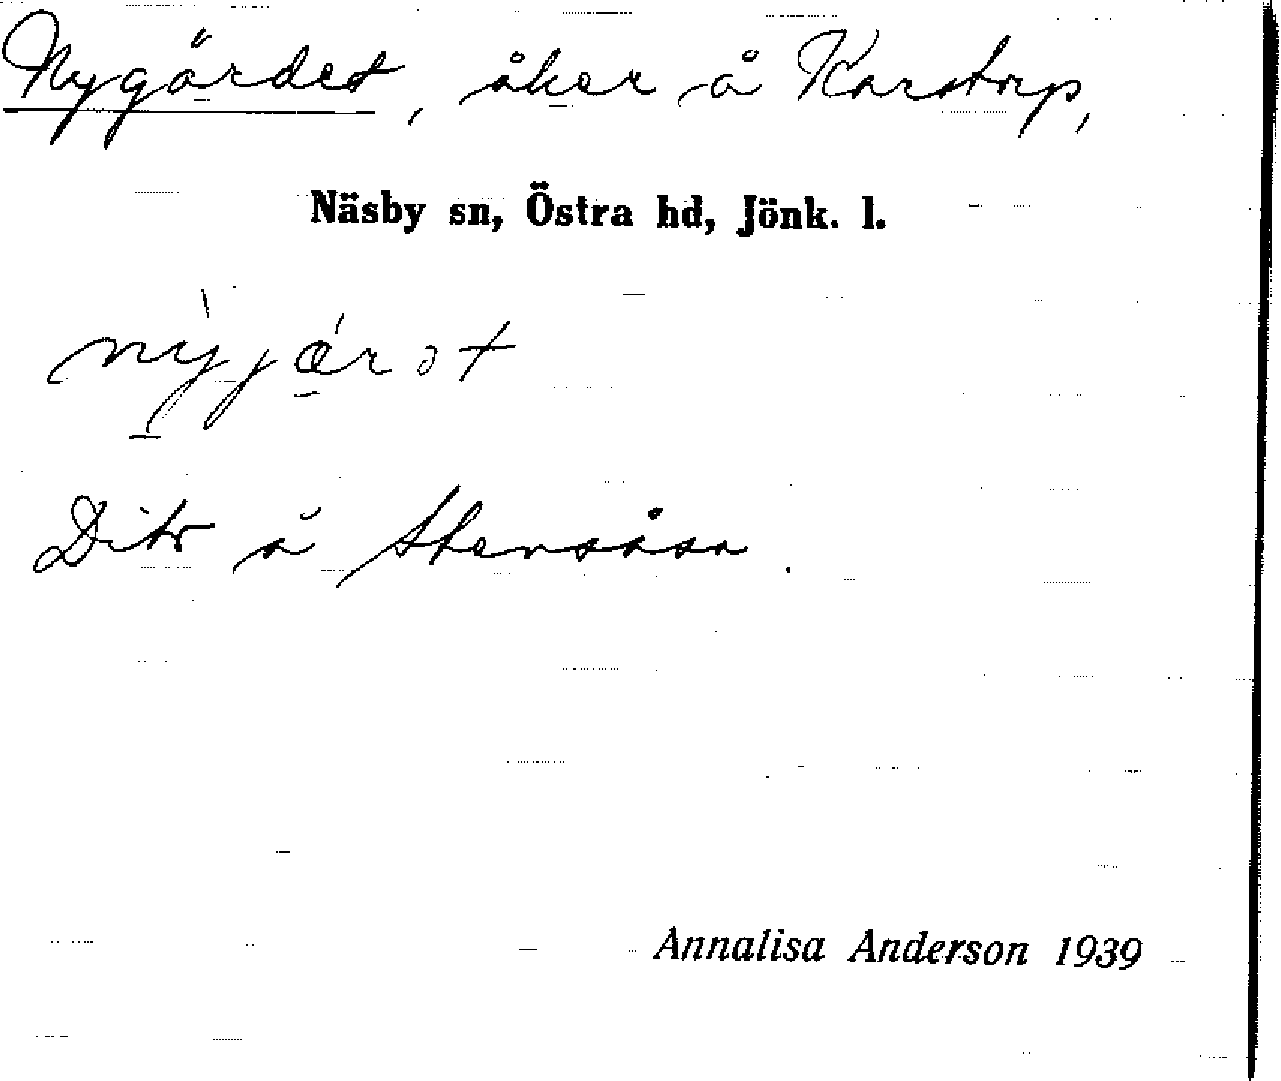 Nygärdet, åker å Karstorp,
Näsby sn, Östra hd, Jönk. l.
nỳjǽrət
Dito å Stensåsa.
Annalisa Anderson 1939